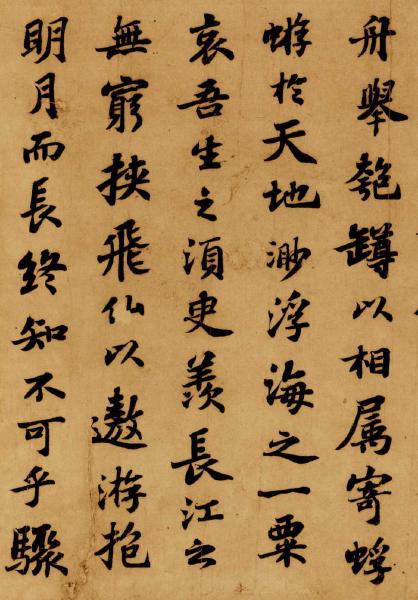 舟舉匏罇以相属寄蜉
蝣於天地渺浮海之一粟
哀吾生之須臾羨長江之
無窮挾飛仙以遨游抱
明月而長終知不可乎驟